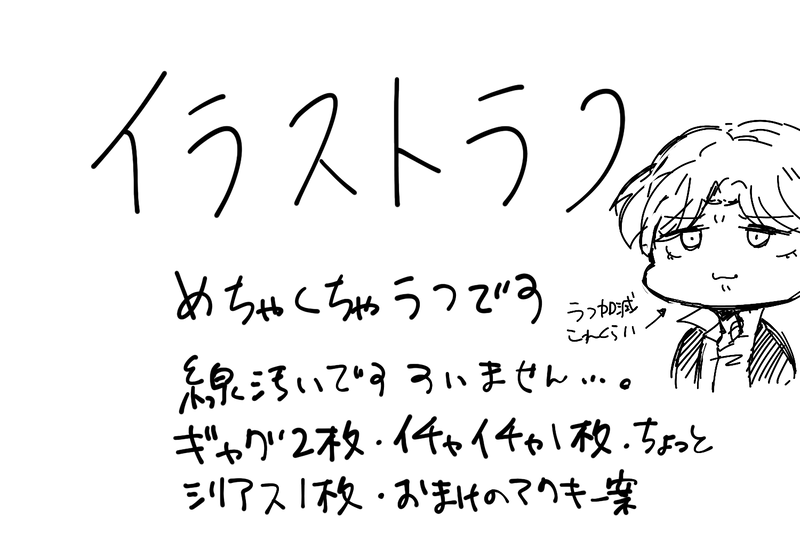 イラストラフ
めちゃくちゃラフです
ラフ加減
これくらい
線汚いです すいません…。
ギャグ2枚・イチャイチャ1枚・ちょっと
シリアス1枚・おまけのアクキー案